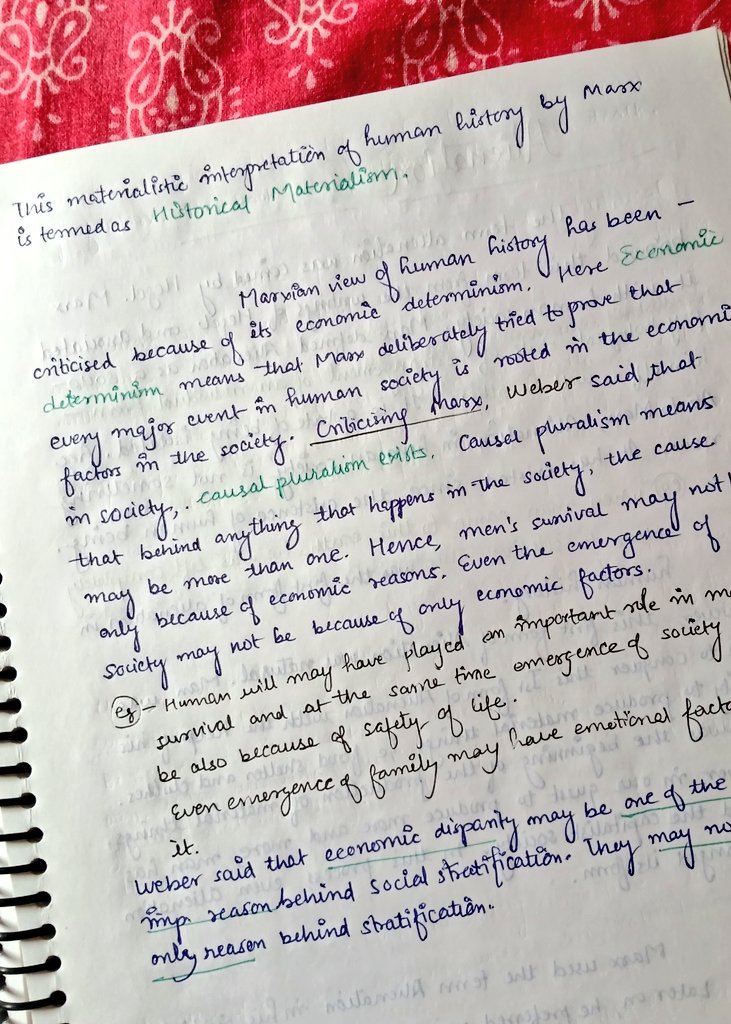 This materialistic interpretation of human history by Marx
is termed as Historical Materialism.
Marxian view of human history has been -
criticised because of its economic determinism. Here Economic
determinism means that Marx deliberately tried to prove that
every major event in human society is rooted in the economi
factors in the society. Criticising Marx, Weber said that
in society, causal pluralism exists. Causel pluralism means
that behind anything that happens in the society, the cause
may be more than one. Hence, men's survival may not
only because of economic reasons. Even the emergence of
society may not be because of only economic factors.
eg - Human will may have played an important role in m
survival and at the same time emergence of society
be also because of safety of life.
Even emergence of family may have emotional facto
it.
Weber said that economic disparity may be one of the
imp. reason behind social stratification. They may no
only reason behind stratification.